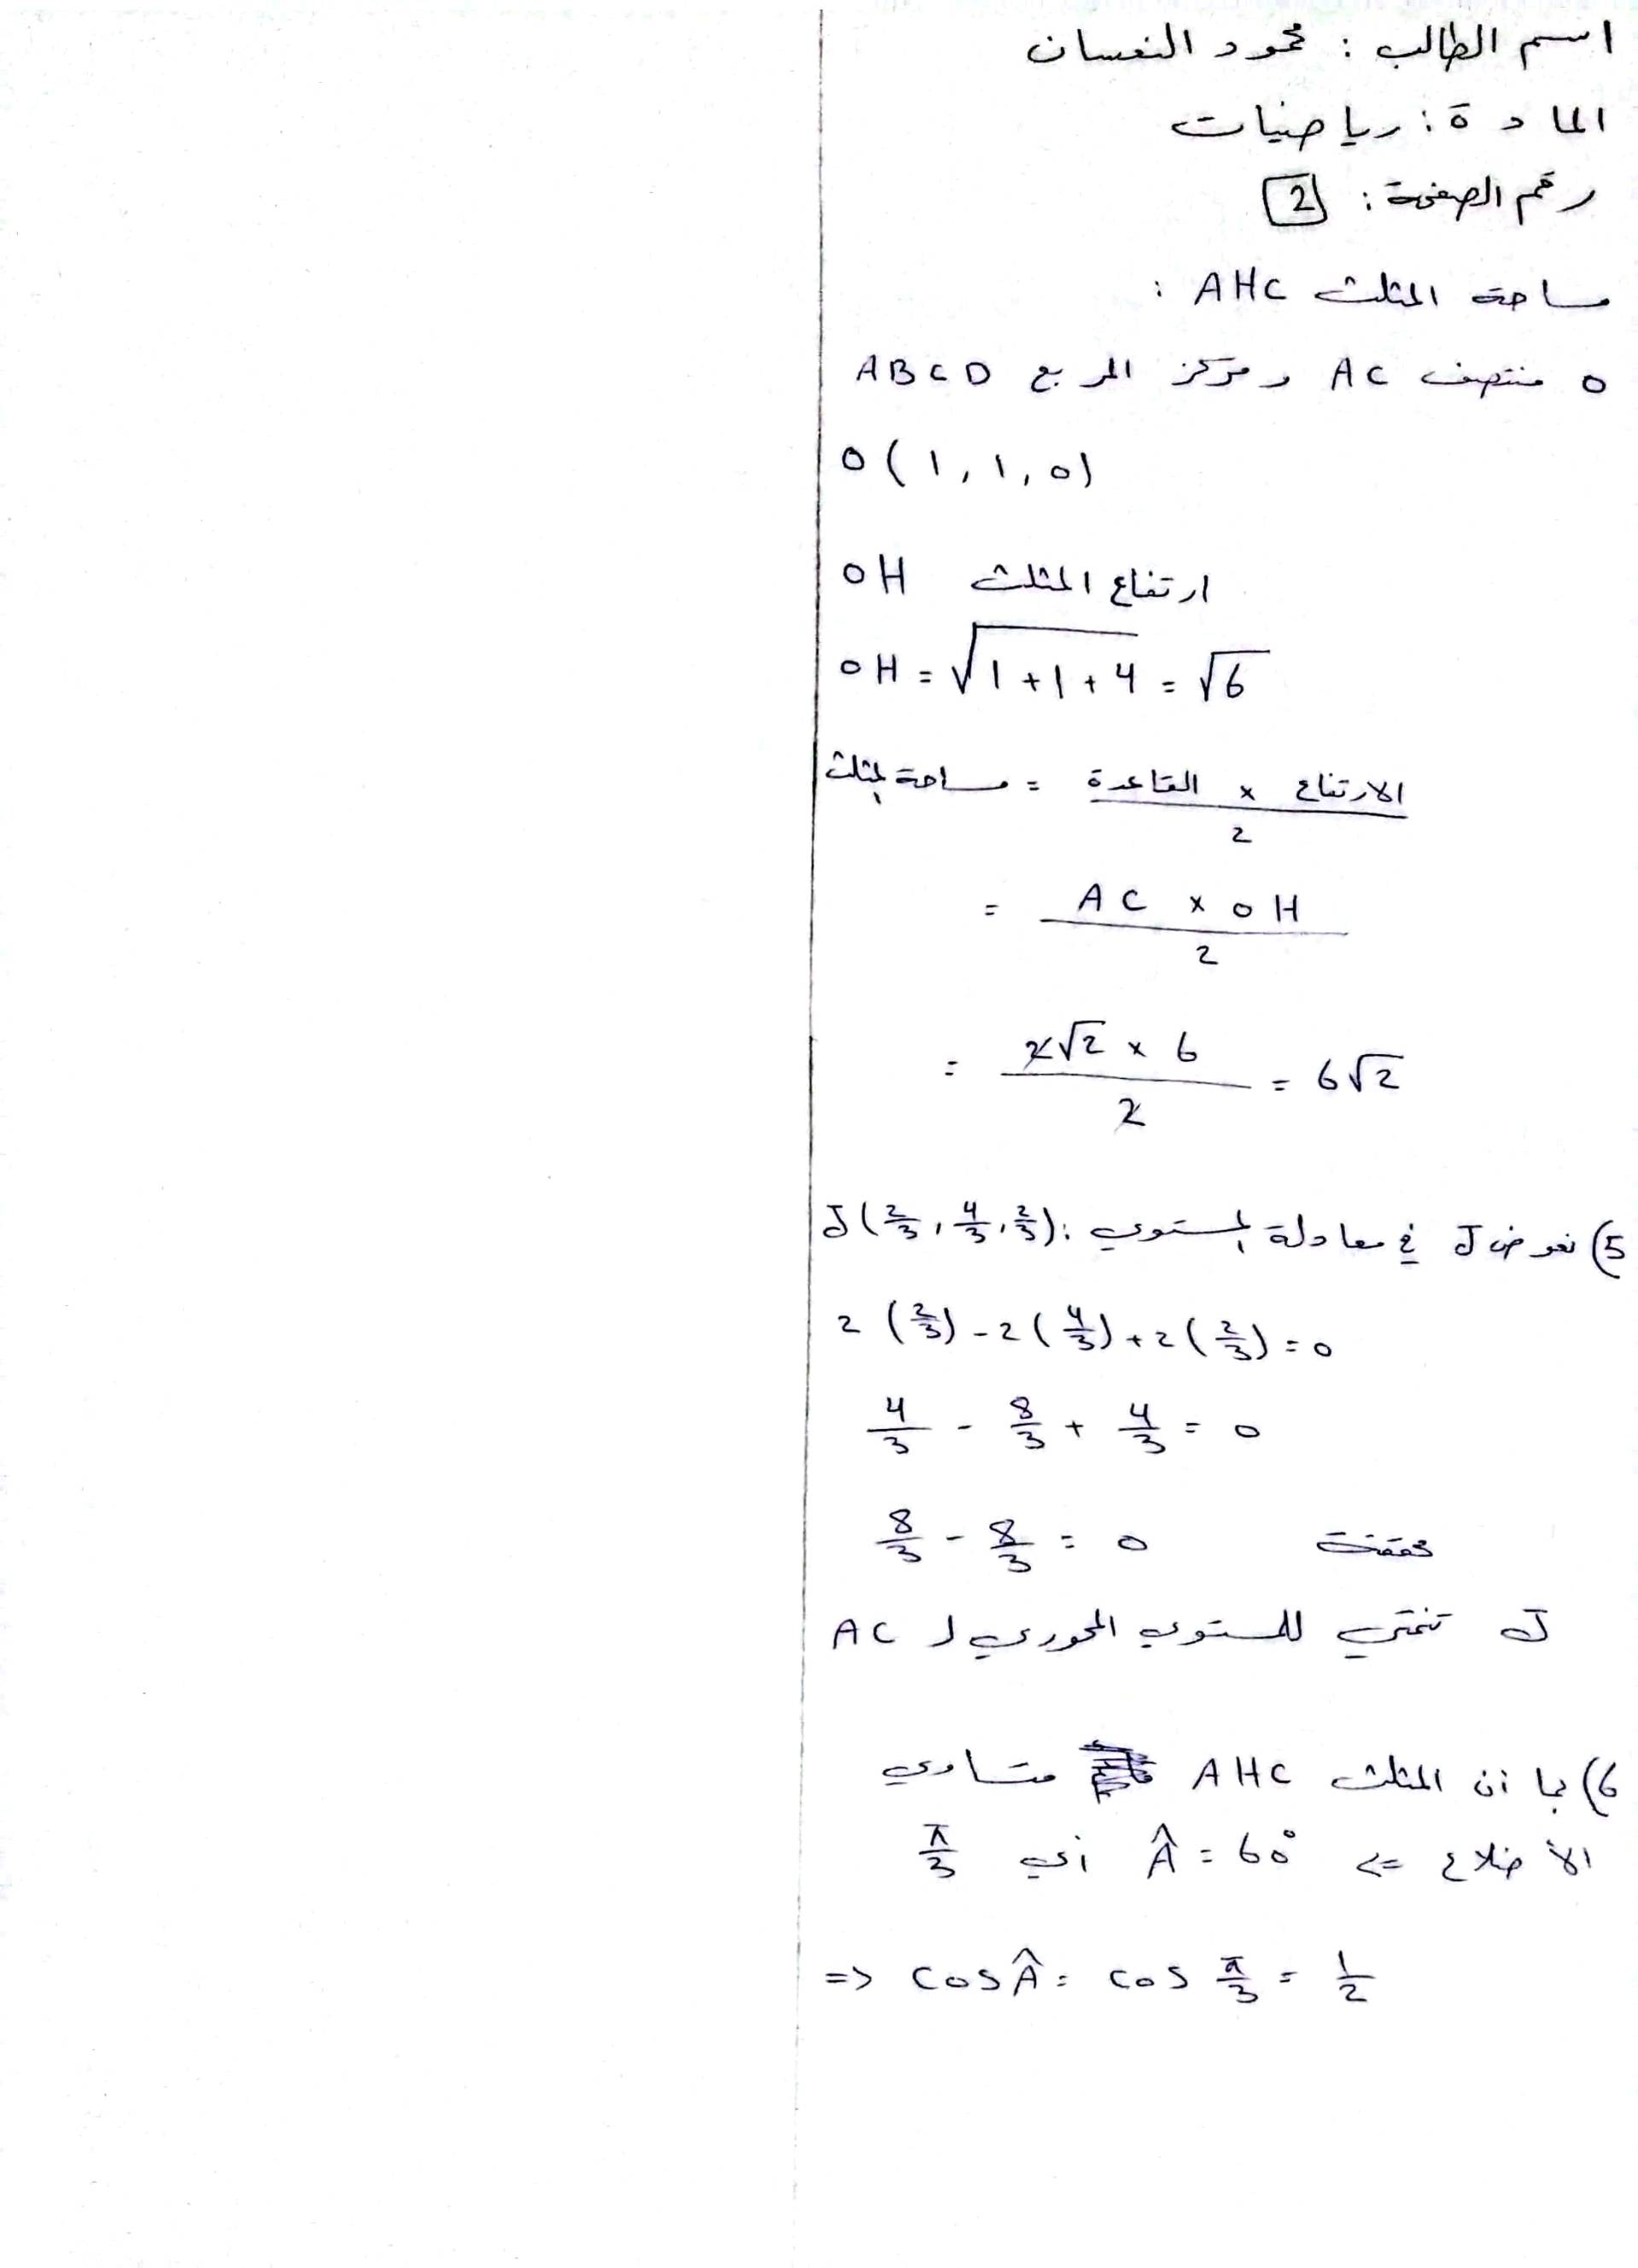 اسم الطالب : محمود النعسان
المادة : رياضيات
رقم الصفحة : 2
مساحة المثلث AHC :
O منتصف AC ومركز المربع ABCD
O(1, 1, 0)
ارتفاع المثلث OH
OH = √(1+1+4) = √6
مساحة المثلث = (القاعدة × الارتفاع) / 2
= (AC × OH) / 2
= (2√2 × 6) / 2 = 6√2
5) نعوض J في معادلة المستوي : J(2/3, 4/3, 2/3)
2(2/3) - 2(4/3) + 2(2/3) = 0
4/3 - 8/3 + 4/3 = 0
8/3 - 8/3 = 0 محققة
J تنتمي للمستوي المحوري لـ AC
6) بما أن المثلث AHC متساوي
الأضلاع => Â = 60° أي π/3
=> cos Â = cos π/3 = 1/2